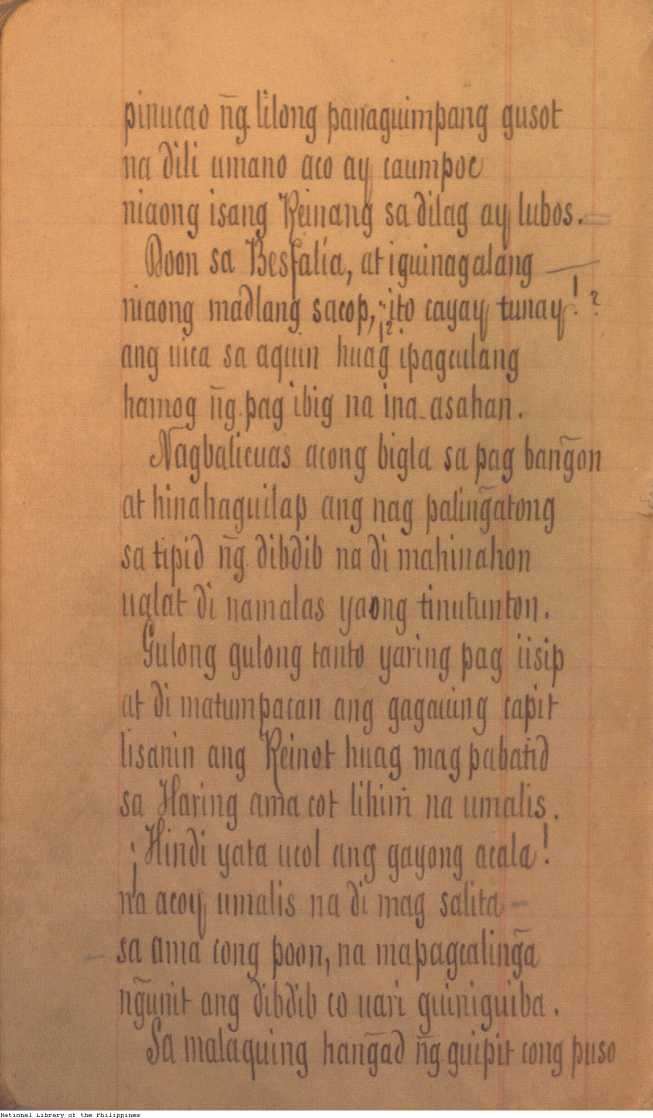 pinucao n͠g. lilong panaguimpang gusot
na dili umano aco ay caumpoc
niaong isang Reinang sa dilag ay lubos.
Doon sa Besfalia, at iguinagalang
niaong madlang sacop, ¿¡ito cayay tunay!?
ang uica sa aquin huag ipagculang
hamog n͠g. pag ibig na ina-asahan.
Nagbalicuas acong bigla sa pag bang̃on
at hinahaguilap ang nag paling̃atong
sa tipid n͠g. dibdib na di mahinahon
ugat di namalas yaong tinutunton.
Gulong gulong tanto yaring pag iisip
at di matumpacan ang gagauing capit
lisanin ang Reinot huag mag pabatid
sa Haring ama cot lihim na umalis.
¡Hindi yata ucol ang gayong acala!
na acoy umalis na di mag salita
sa ama cong poon, na mapagcaling̃a
ng̃unit ang dibdib co uari guiniguiba.
Sa malaquing hang̃ad n͠g guipit cong puso
National Library of the Philippines